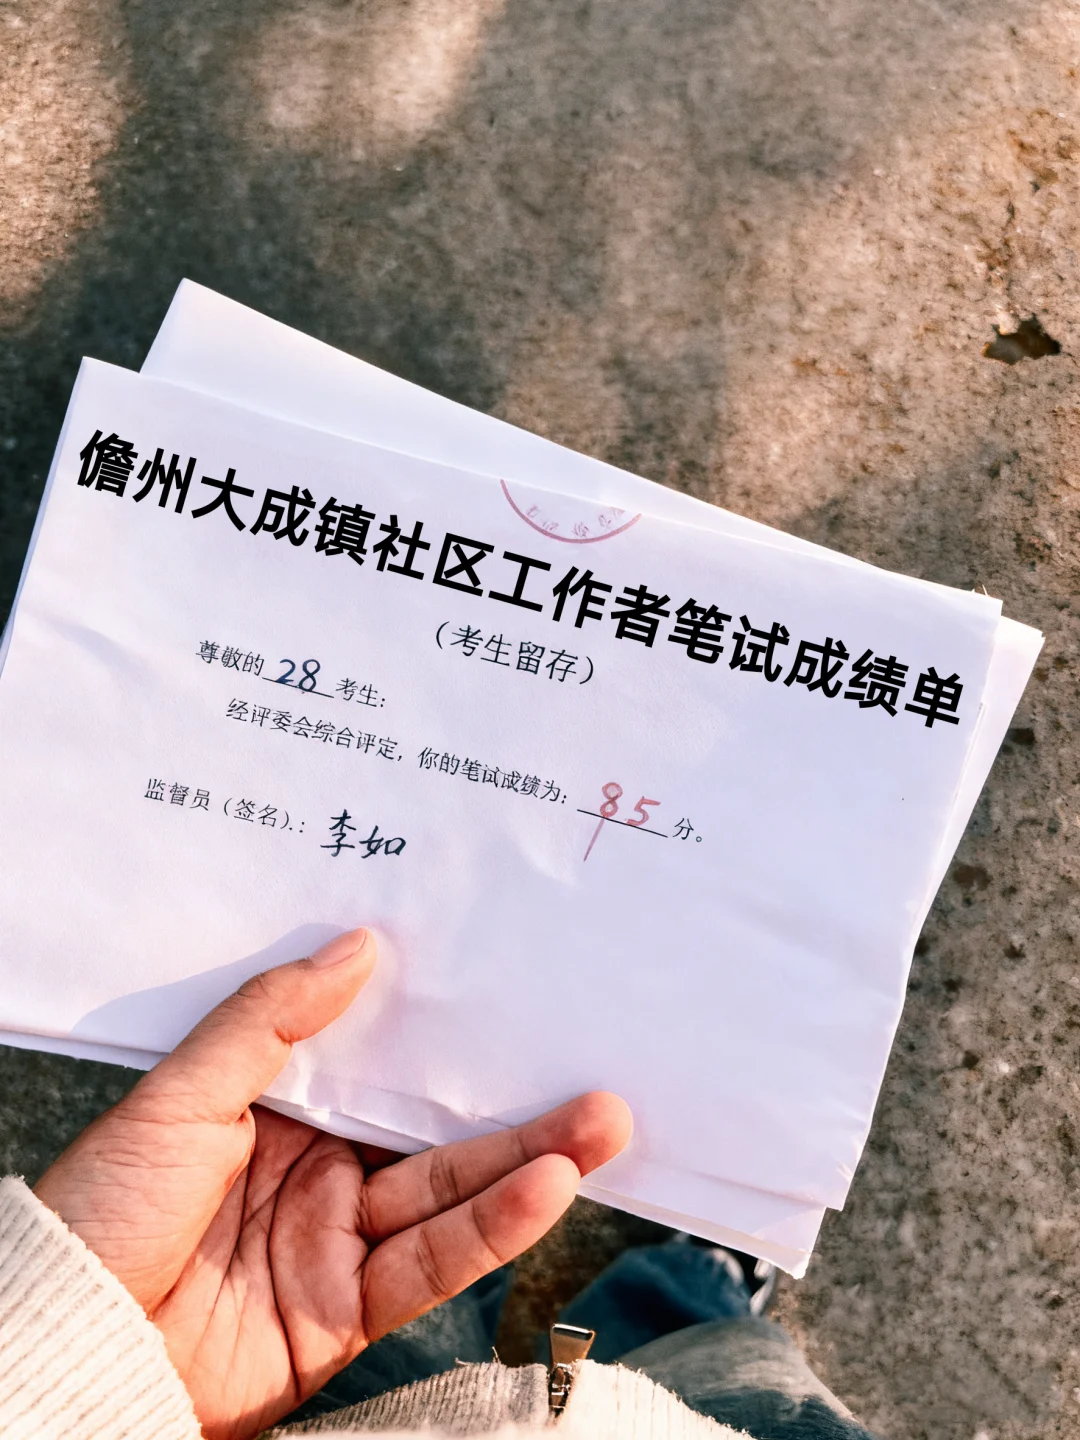 儋州大成镇社区工作者笔试成绩单
（考生留存）
尊敬的 28 考生：
经评委会综合评定，你的笔试成绩为： 85 分。
监督员（签名）.： 李如